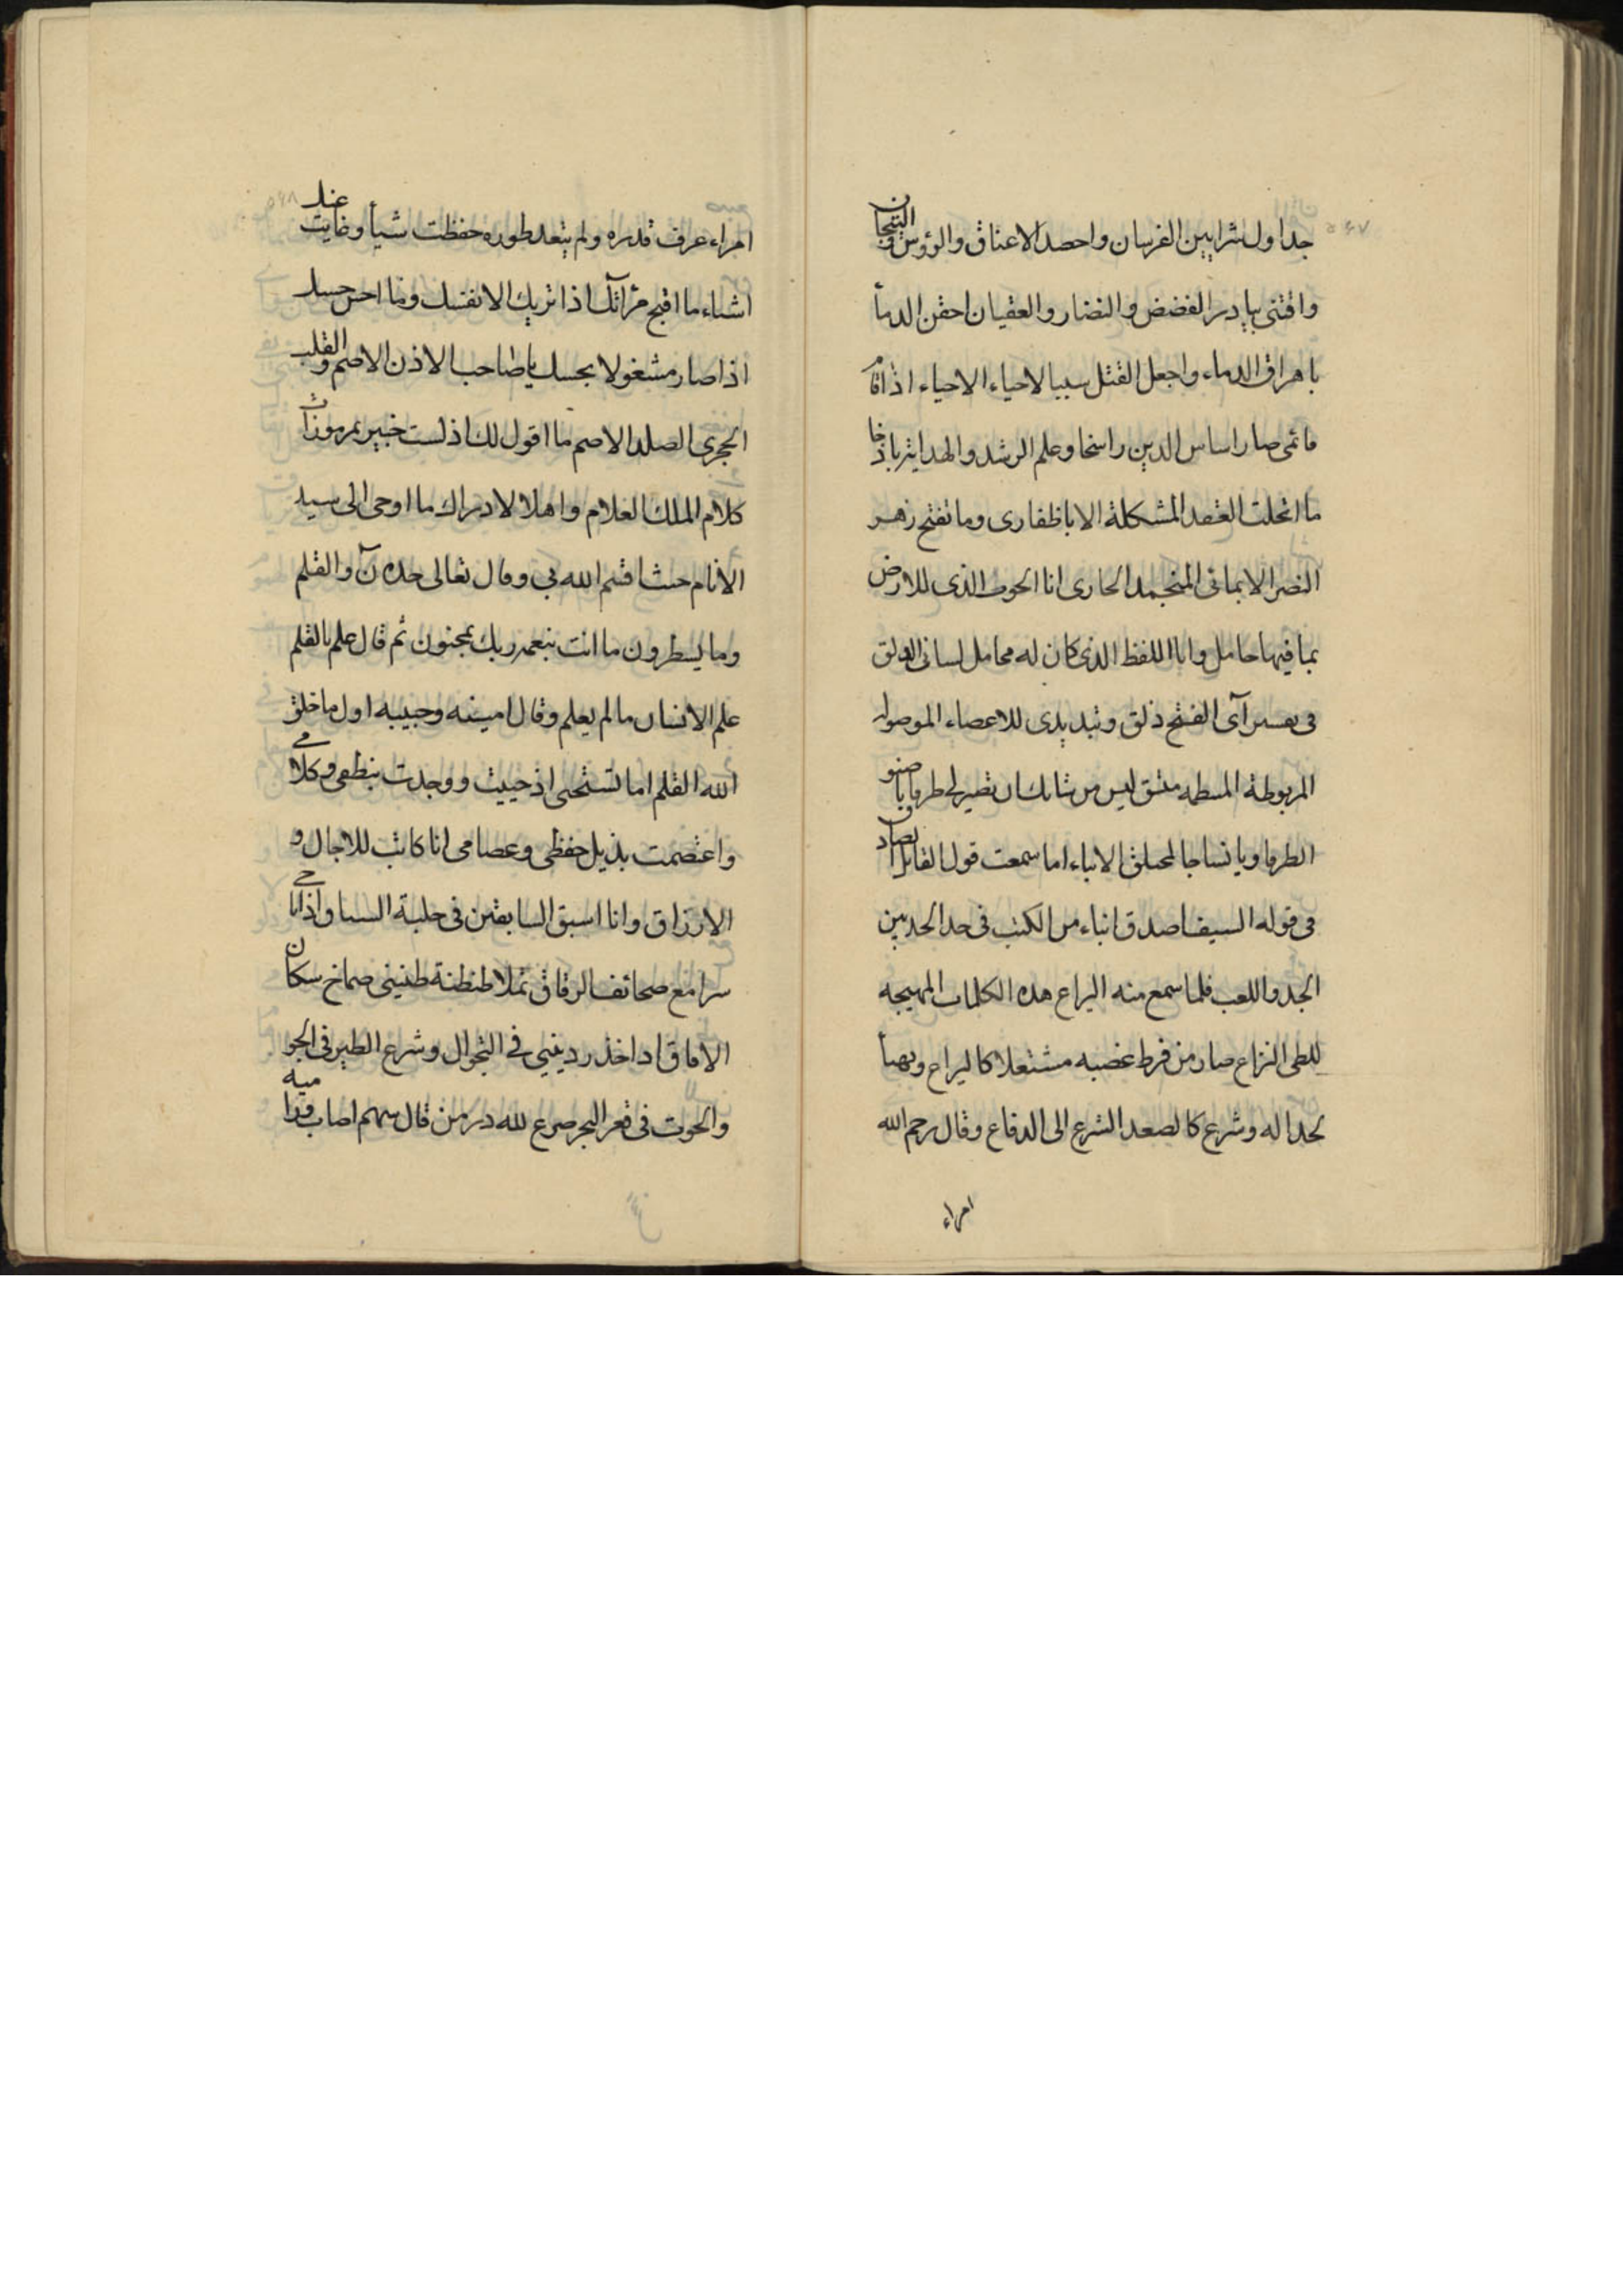 جداول شرايين الفرسان واحصد الاعناق والرؤوس والتيجان
واقتنى بيادر الفضض والنضار والعقيان احقن الدمأ
باهراق الدماء واجعل القتل سببا لاحياء الاحياء اذا قام
قائمى صار اساس الدين راسخا وعلم الرشد والهداية باذخا
ما انحلت العقد المشكلة الا باظفارى وما تفتح زهر
النصر الا بمائى المنجمد الجارى انا الحوت الذى للارض
بما فيها حامل وانا اللفظ الذى كان له محامل لسانى الدلق
فى تفسير آى الفتح ذلق وتبديدى للاعصاء الموصولة
المربوطة ليس من شانك ان تصير لى طرفا يا صنو
الطرفا ويا نساجا الانباء اما سمعت قول القائل
فى قوله السيف اصدق انباء من الكتب فى حده الحد بين
الجد واللعب فلما سمع منه اليراع هذه الكلمات المهيجه
للظى النزاع صار من فرط غضبه مشتعلا كاليراع وتهيأ
لجداله وشرع كالصعد الشرع الى الدفاع وقال رحم الله
امراء
امراء عرف قدره ولم يتعد طوره حفظت شيأ وغابت عنك
اشياء ما اقبح مرآتك اذا تريك الا نفسك وما احس حسك
اذا صار مشغولا بحسك يا صاحب الاذن الاصم والقلب
الحجرى الصلد الاصم ما اقول لك اذ لست خبير بمرموزات
كلام الملك العلام واهلا لادراك ما اوحى الى سيد
الانام حيث اقسم الله بى وقال تعالى جده نٓ والقلم
وما يسطرون ما انت بنعمة ربك بمجنون ثم قال علم بالقلم
علم الانسان ما لم يعلم وقال امينه وحبيبه اول ما خلق
الله القلم اما تستحى اذ حييت ووجدت بنطفى وكلامى
واعتصمت بذيل حفظى وعصامى انا كاتب للاجال و
الارزاق وانا اسبق السابقين فى حلبة السباق واذانى
سرامع صحائف الرقاق تملا طنطنة طنينى صماخ سكان
الافاق اذا خذ ردينيى فى التجوال وشرع الطير فى الجو
والحوت فى قعر البحر صرع لله در من قال سهم اصاب وراميه